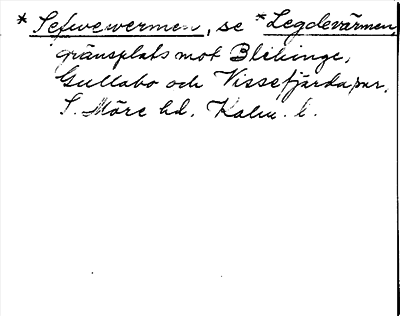 * Sefwewermen, se * Legdevärmen,
gränsplats mot Blekinge,
Gullabo och Vissefjärda snr,
S. Möre hd, Kalm. l.